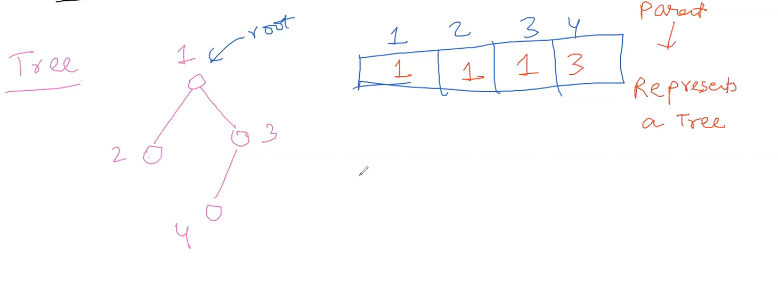 Tree
1
root
2
3
4
1 2 3 4
1 1 1 3
Parent
Represents
a Tree